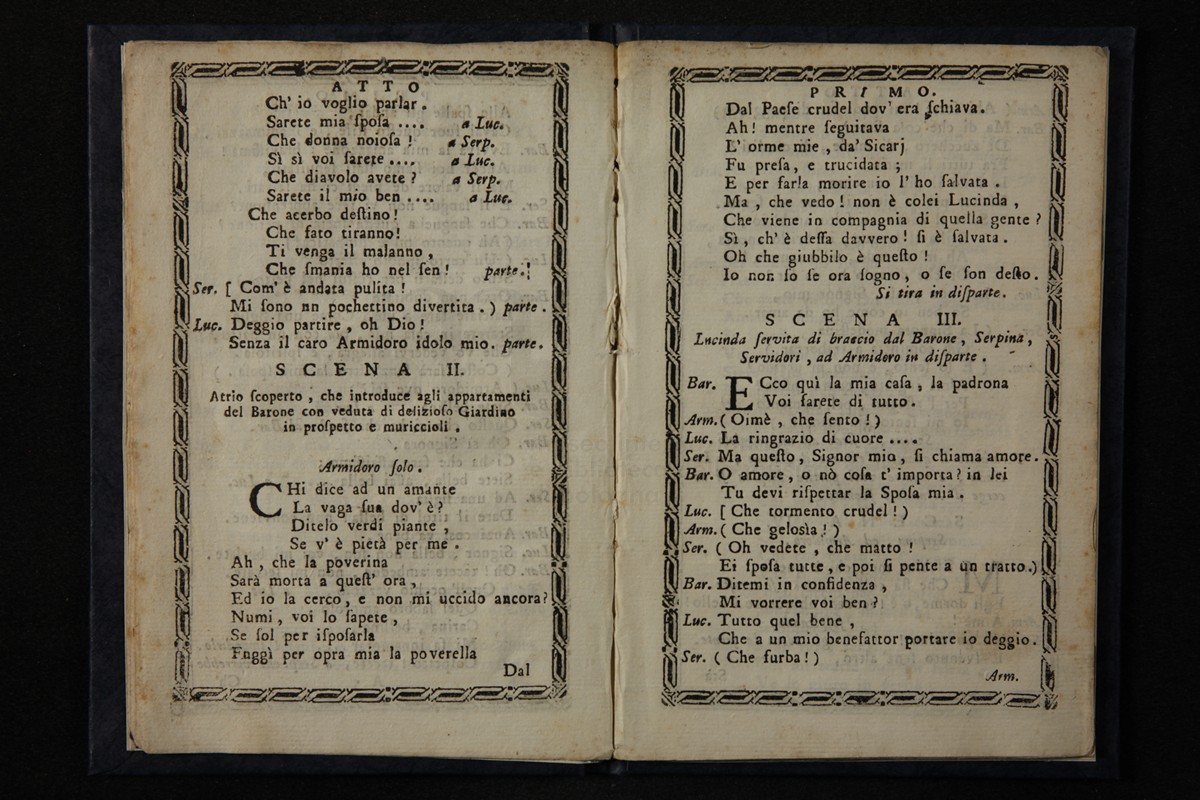 ATTO
Ch' io voglio parlar.
Sarete mia ſpoſa .... a Luc.
Che donna noioſa! a Serp.
Sì sì voi ſarete .... a Luc.
Che diavolo avete? a Serp.
Sarete il mio ben .... a Luc.
Che acerbo deſtino!
Che fato tiranno!
Ti venga il malanno,
Che ſmania ho nel ſen! parte.
Ser. [ Com' è andata pulita!
Mi ſono nn pochettino divertita.) parte.
Luc. Deggio partire, oh Dio!
Senza il caro Armidoro idolo mio. parte.
SCENA II.
Atrio ſcoperto, che introduce agli appartamenti
del Barone con veduta di delizioſo Giardino
in proſpetto e muriccioli.
Armidoro ſolo.
CHi dice ad un amante
La vaga ſua dov' è?
Ditelo verdi piante,
Se v' è pietà per me.
Ah, che la poverina
Sarà morta a queſt' ora,
Ed io la cerco, e non mi uccido ancora?
Numi, voi lo ſapete,
Se ſol per iſpoſarla
Fuggì per opra mia la poverella
Dal
PRIMO.
Dal Paeſe crudel dov' era ſchiava.
Ah! mentre ſeguitava
L' orme mie, da' Sicarj
Fu preſa, e trucidata;
E per farla morire io l' ho ſalvata.
Ma, che vedo! non è colei Lucinda,
Che viene in compagnia di quella gente?
Sì, ch' è deſſa davvero! ſi è ſalvata.
Oh che giubbilo è queſto!
Io non ſo ſe ora ſogno, o ſe ſon deſto.
Si tira in diſparte.
SCENA III.
Lucinda ſervita di braccio dal Barone, Serpina,
Servidori, ad Armidoro in diſparte.
Bar. ECco quì la mia caſa, la padrona
Voi ſarete di tutto.
Arm. ( Oimè, che ſento!)
Luc. La ringrazio di cuore ....
Ser. Ma queſto, Signor mio, ſi chiama amore.
Bar. O amore, o nò coſa t' importa? in lei
Tu devi riſpettar la Spoſa mia.
Luc. [ Che tormento crudel!)
Arm. ( Che geloſìa!)
Ser. ( Oh vedete, che matto!
Ei ſpoſa tutte, e poi ſi pente a un tratto.)
Bar. Ditemi in confidenza,
Mi vorrere voi ben?
Luc. Tutto quel bene,
Che a un mio benefattor portare io deggio.
Ser. ( Che furba!)
Arm.